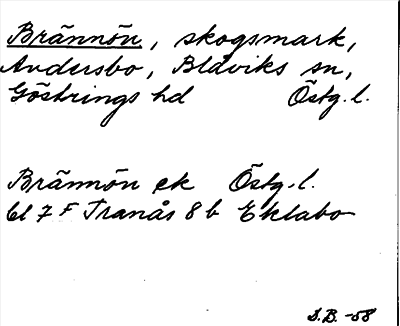 Brännön, skogsmark,
Andersbo, Blåviks sn,
Göstrings hd Östg.l.
Brännön ek Östg.l.
bl 7 F Tranås 8 b Eklabo
S.B. -58